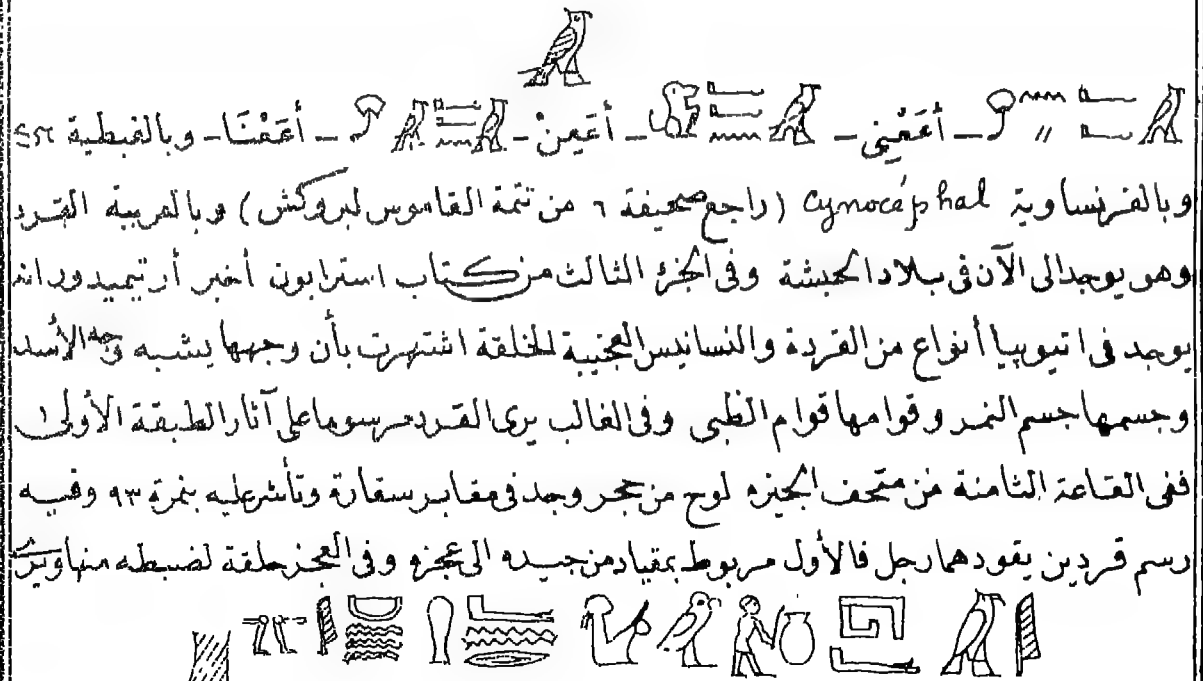 ـ أَعَعْنِي ـ أعَعِنْ ـ أَعَعْنَا ـ وبالقبطية
وبالفرنساوية Cynocéphal (راجع صحيفة ٦ من تتمة القاموس لبروكش) وبالعربية القرد
وهو يوجد الى الآن فى بلاد الحبشة وفى الجزء الثالث من كتاب استرابون أخبر أرتيميدور انه
يوجد فى اتيوبيا أنواع من القردة والنسانيس العجيبة الخلقة اشتهرت بأن وجهها يشبه وجه الأسد
وجسمها جسم النمر وقوامها قوام الظبى وفى الغالب يرى القرد مرسوما على آثار الطبقة الأولى
ففى القاعة الثامنة من متحف الجيزه لوح من حجر وجد فى مقابر سقارة وتأشر عليه بنمرة ٩٣ وفيه
رسم قردين يقودهما رجل فالأول مربوط بمقياد من جيده الى عجزه وفى العجز حلقة لضبطه منها